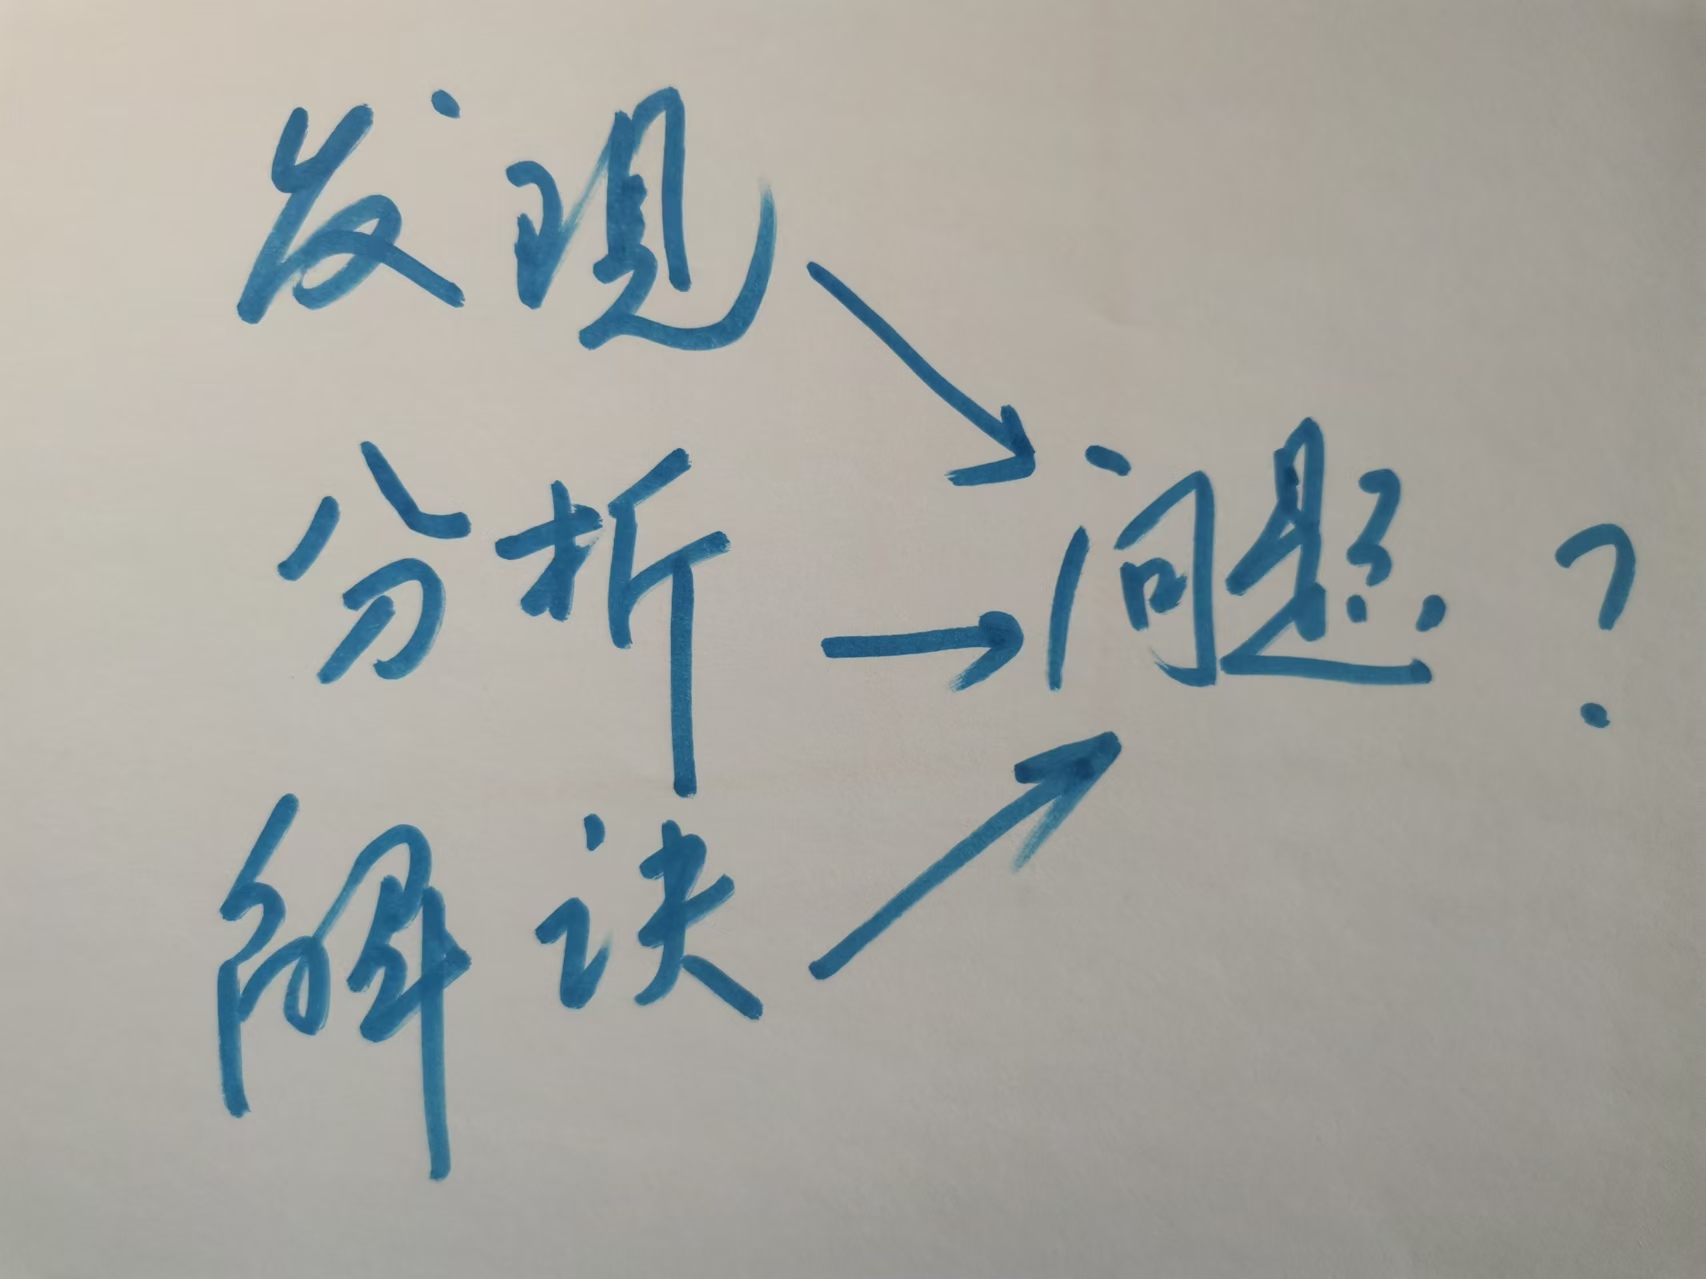 发现
分析
解决
问题？